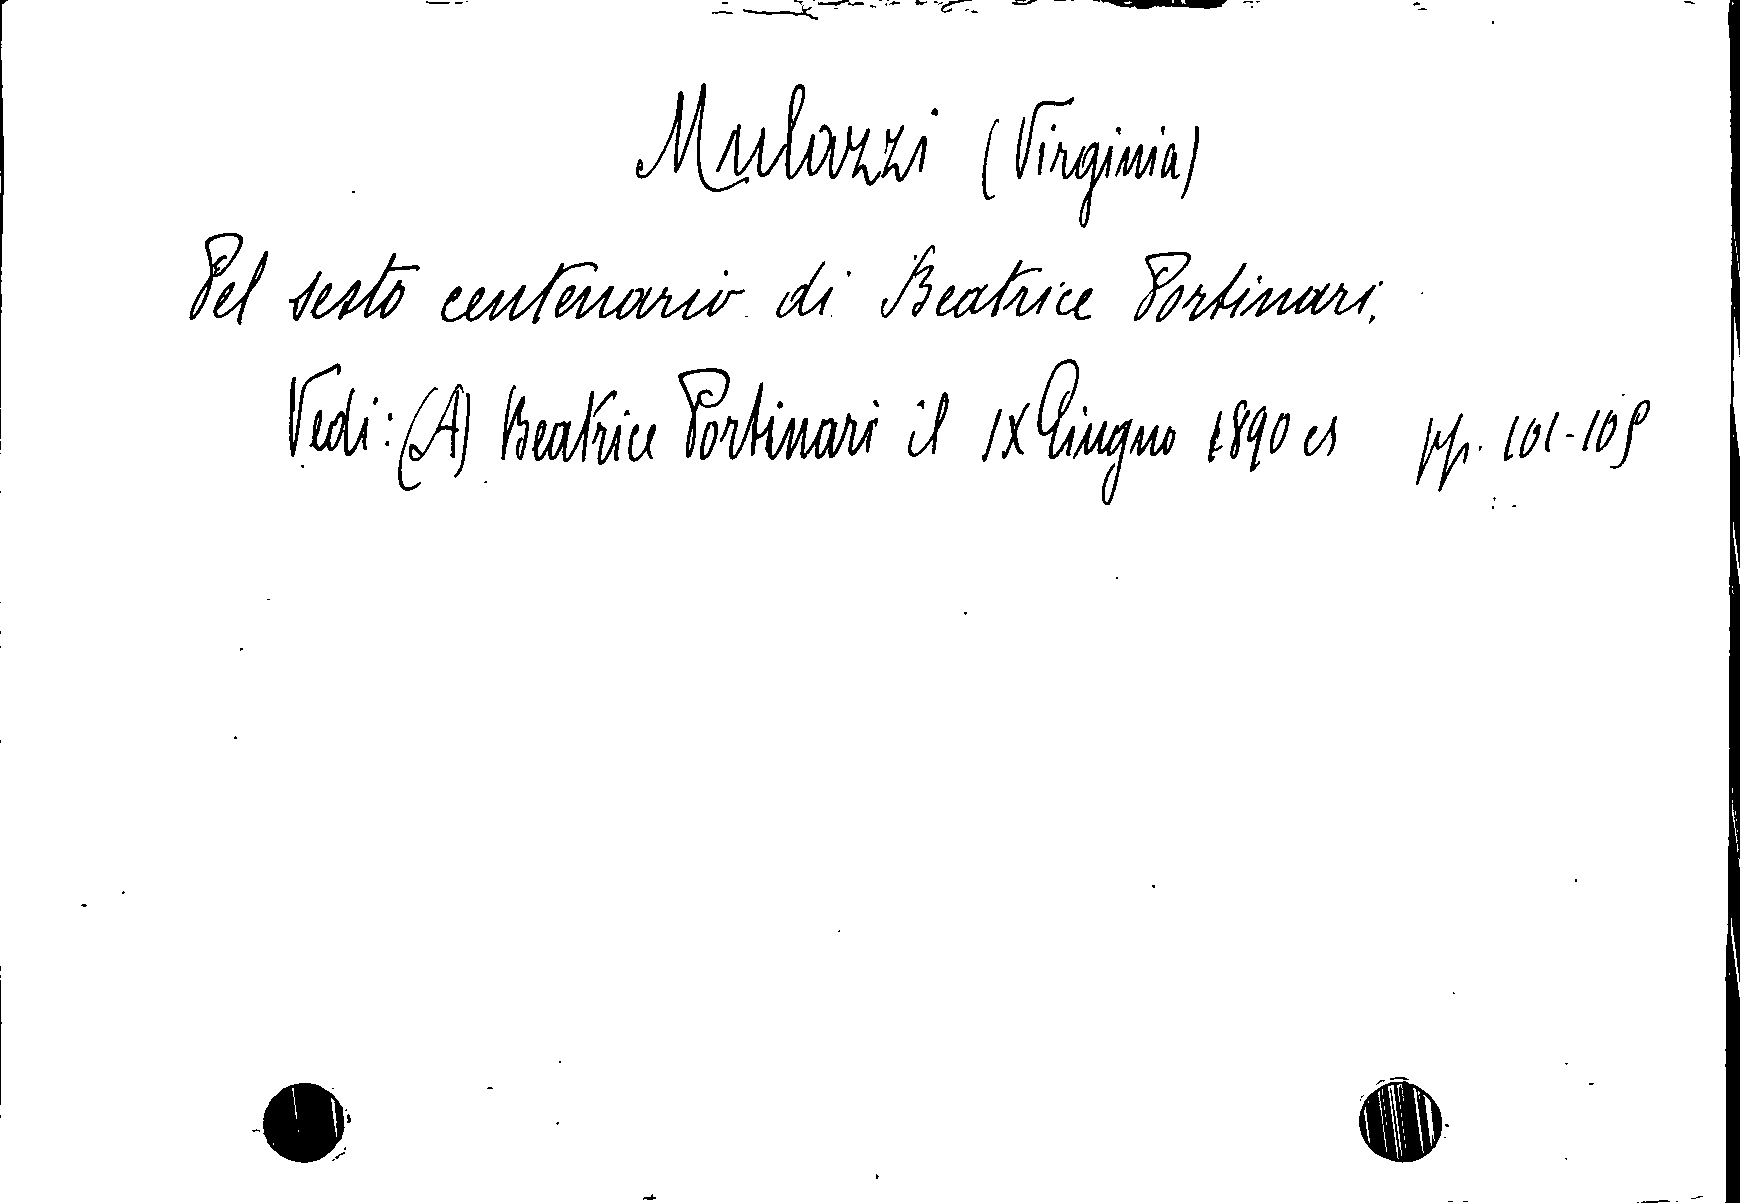 Mulazzi (Virginia)
Pel sesto centenario di Beatrice Portinari.
Vedi: (A) Beatrice Portinari il IX Giugno 1890 pp. 101-109